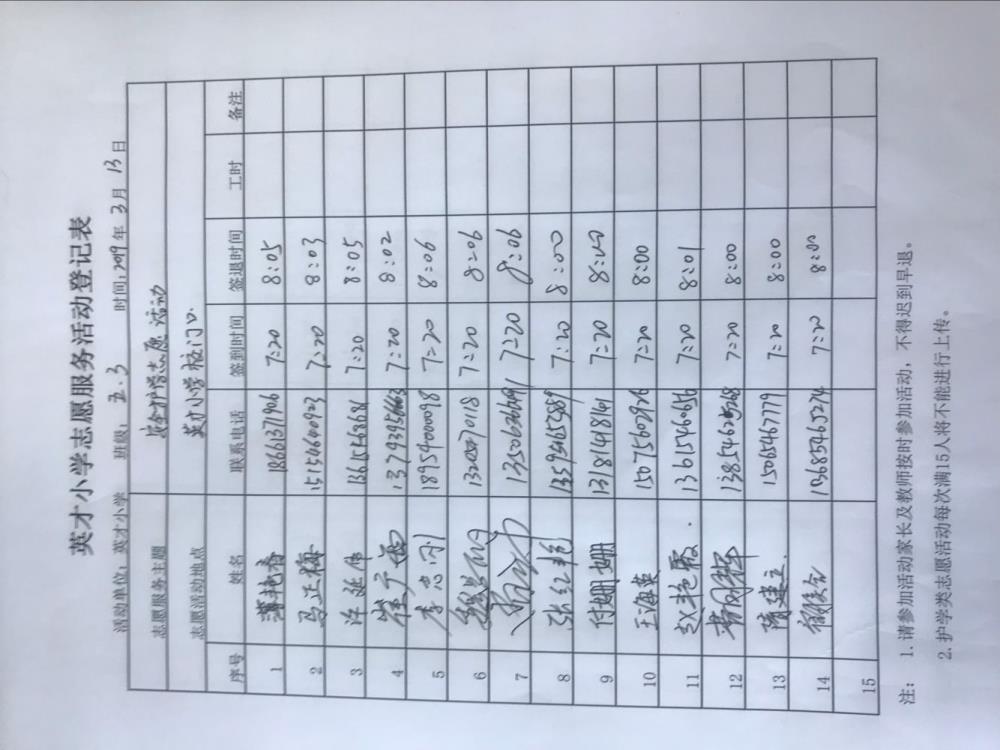 英才小学志愿服务活动登记表
活动单位：英才小学 班级：五.3 时间：2019年3月13日
志愿服务主题 安全护学志愿活动
志愿活动地点 英才小学校门口.
序号 姓名 联系电话 签到时间 签退时间 工时 备注
1 薄艳春 18661371906 7:20 8:05
2 马正梅 15154640923 7:20 8:03
3 许延伟 7:20 8:05
4 崔广雷 7:20 8:02
5 李忠刚 18954000098 7:20 8:06
6 7:20 8:06
7 7:20 8:06
8 张红彬 7:20 8:00
9 付姗姗 13181148141 7:20 8:00
10 王海英 15075602926 7:20 8:00
11 赵艳霞. 13615460656 7:20 8:01
12 7:20 8:00
13 隋建立. 15065467779 7:20 8:00
14 7:20 8:00
15
注： 1.请参加活动家长及教师按时参加活动，不得迟到早退。
2.护学类志愿活动每次满15人将不能进行上传。